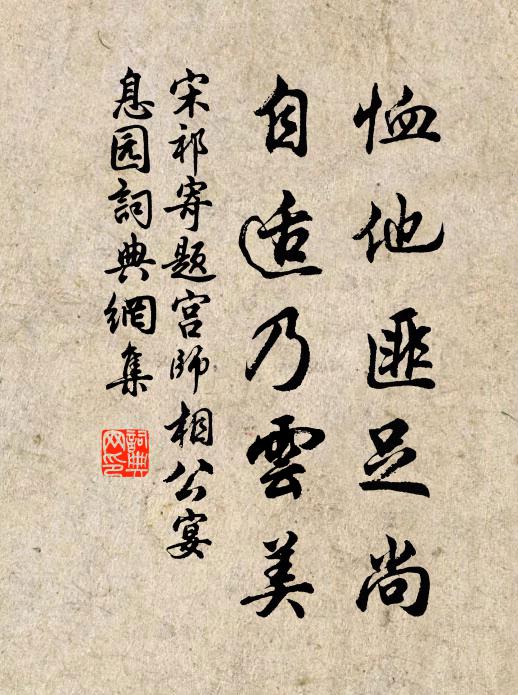 恤他匪足尚
自适乃雲美
宋祁寄题宫師相公宴
息园詞典網集
詞典
网印